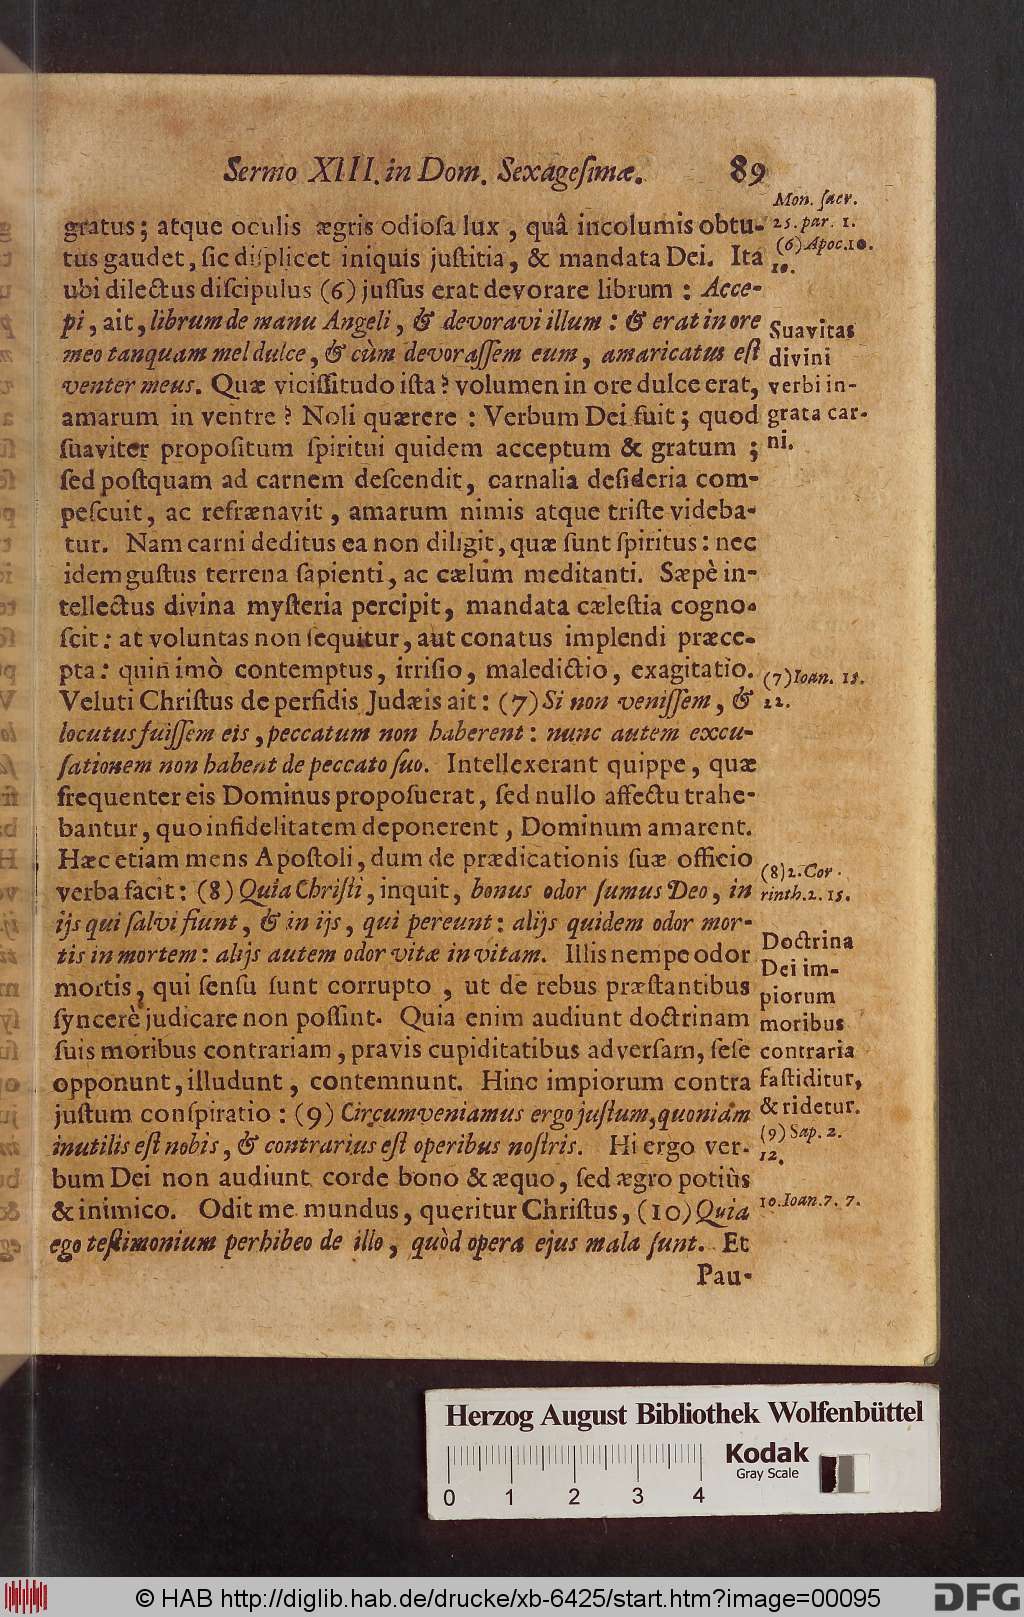 Sermo XIII. in Dom. Sexageſimæ. 89
gratus; atque oculis ægris odioſa lux, quâ incolumis obtu-
tus gaudet, ſic diſplicet iniquis juſtitia, & mandata Dei. Ita
ubi dilectus diſcipulus (6) juſſus erat devorare librum: Acce-
pi, ait, librum de manu Angeli, & devoravi illum: & erat in ore
meo tanquam mel dulce, & cùm devoraſſem eum, amaricatus eſt
venter meus. Quæ viciſſitudo iſta? volumen in ore dulce erat,
amarum in ventre? Noli quærere: Verbum Dei fuit; quod
ſuaviter propoſitum ſpiritui quidem acceptum & gratum;
ſed poſtquam ad carnem deſcendit, carnalia deſideria com-
peſcuit, ac refrænavit, amarum nimis atque triſte videba-
tur. Nam carni deditus ea non diligit, quæ ſunt ſpiritus: nec
idem guſtus terrena ſapienti, ac cælum meditanti. Sæpè in-
tellectus divina myſteria percipit, mandata cæleſtia cogno-
ſcit: at voluntas non ſequitur, aut conatus implendi præce-
pta: quin imò contemptus, irriſio, maledictio, exagitatio.
Veluti Chriſtus de perfidis Judæis ait: (7) Si non veniſſem, &
locutus fuiſſem eis, peccatum non haberent: nunc autem excu-
ſationem non habent de peccato ſuo. Intellexerant quippe, quæ
frequenter eis Dominus propoſuerat, ſed nullo affectu trahe-
bantur, quo infidelitatem deponerent, Dominum amarent.
Hæc etiam mens Apoſtoli, dum de prædicationis ſuæ officio
verba facit: (8) Quia Chriſti, inquit, bonus odor ſumus Deo, in
ijs qui ſalvi fiunt, & in ijs, qui pereunt: alijs quidem odor mor-
tis in mortem: alijs autem odor vitæ in vitam. Illis nempe odor
mortis, qui ſenſu ſunt corrupto, ut de rebus præſtantibus
ſyncerè judicare non poſſint. Quia enim audiunt doctrinam
ſuis moribus contrariam, pravis cupiditatibus adverſam, ſeſe
opponunt, illudunt, contemnunt. Hinc impiorum contra
juſtum conſpiratio: (9) Circumveniamus ergo juſtum, quoniam
inutilis eſt nobis, & contrarius eſt operibus noſtris. Hi ergo ver-
bum Dei non audiunt corde bono & æquo, ſed ægro potiùs
& inimico. Odit me mundus, queritur Chriſtus, (10) Quia
ego teſtimonium perhibeo de illo, quòd opera ejus mala ſunt. Et
Pau-
Mon. ſacr.
25. par. 1.
(6) Apoc. 10.
10.
Suavitas
divini
verbi in-
grata car-
ni.
(7) Ioan. 15.
22.
(8) 2. Cor.
rinth. 2. 15.
Doctrina
Dei im-
piorum
moribus
contraria
faſtiditur,
& ridetur.
(9) Sap. 2.
12.
10. Ioan. 7. 7.
Herzog August Bibliothek Wolfenbüttel
Kodak
Gray Scale
0 1 2 3 4
© HAB http://diglib.hab.de/drucke/xb-6425/start.htm?image=00095
DFG